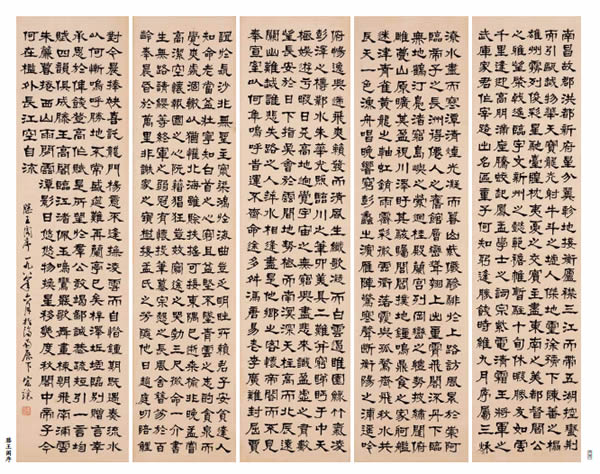 南昌故郡洪都新府星分翼軫地接衡廬襟三江而帶五湖控蠻荊
而引甌越物華天寶龍光射牛斗之墟人傑地靈徐孺下陳蕃之榻
雄州霧列俊彩星馳臺隍枕夷夏之交賓主盡東南之美都督閻公
之雅望棨戟遙臨宇文新州之懿範襜帷暫駐十旬休暇勝友如雲
千里逢迎高朋滿座騰蛟起鳳孟學士之詞宗紫電清霜王將軍之
武庫家君作宰路出名區童子何知躬逢勝餞時維九月序屬三秋
潦水盡而寒潭清煙光凝而暮山紫儼驂騑於上路訪風景於崇阿
臨帝子之長洲得仙人之舊館層巒聳翠上出重霄飛閣流丹下臨
無地鶴汀鳧渚窮島嶼之縈迴桂殿蘭宮列岡巒之體勢披繡闥俯
雕甍山原曠其盈視川澤盱其駭矚閭閻撲地鐘鳴鼎食之家舸艦
迷津青雀黃龍之軸虹銷雨霽彩徹雲衢落霞與孤鶩齊飛秋水共
長天一色漁舟唱晚響窮彭蠡之濱雁陣驚寒聲斷衡陽之浦遙吟
俯暢逸興遄飛爽籟發而清風生纖歌凝而白雲遏睢園綠竹氣凌
彭澤之樽鄴水朱華光照臨川之筆四美具二難并窮睇眄於中天
極娛遊於暇日天高地迥覺宇宙之無窮興盡悲來識盈虛之有數
望長安於日下指吳會於雲間地勢極而南溟深天柱高而北辰遠
關山難越誰悲失路之人萍水相逢盡是他鄉之客懷帝閽而不見
奉宣室以何年嗚呼時運不齊命途多舛馮唐易老李廣難封屈賈
誼於長沙非無聖主竄梁鴻於海曲豈乏明時所賴君子安貧達人
知命老當益壯寧知白首之心窮且益堅不墜青雲之志酌貪泉而
覺爽處涸轍以猶歡北海雖賒扶搖可接東隅已逝桑榆非晚孟嘗
高潔空懷報國之心阮籍猖狂豈效窮途之哭勃三尺微命一介書
生無路請纓等終軍之弱冠有懷投筆慕宗愨之長風舍簪笏於百
齡奉晨昏於萬里非謝家之寶樹接孟氏之芳鄰他日趨庭叨陪鯉
對今晨捧袂喜託龍門楊意不逢撫凌雲而自惜鍾期既遇奏流水
以何慚嗚呼勝地不常盛筵難再蘭亭已矣梓澤丘墟臨別贈言幸
承恩於偉餞登高作賦是所望於群公敢竭鄙誠恭疏短引一言均
賦四韻俱成滕王高閣臨江渚佩玉鳴鸞罷歌舞畫棟朝飛南浦雲
朱簾暮捲西山雨閒雲潭影日悠悠物換星移幾度秋閣中帝子今
何在檻外長江空自流
滕王閣序
滕王閣序